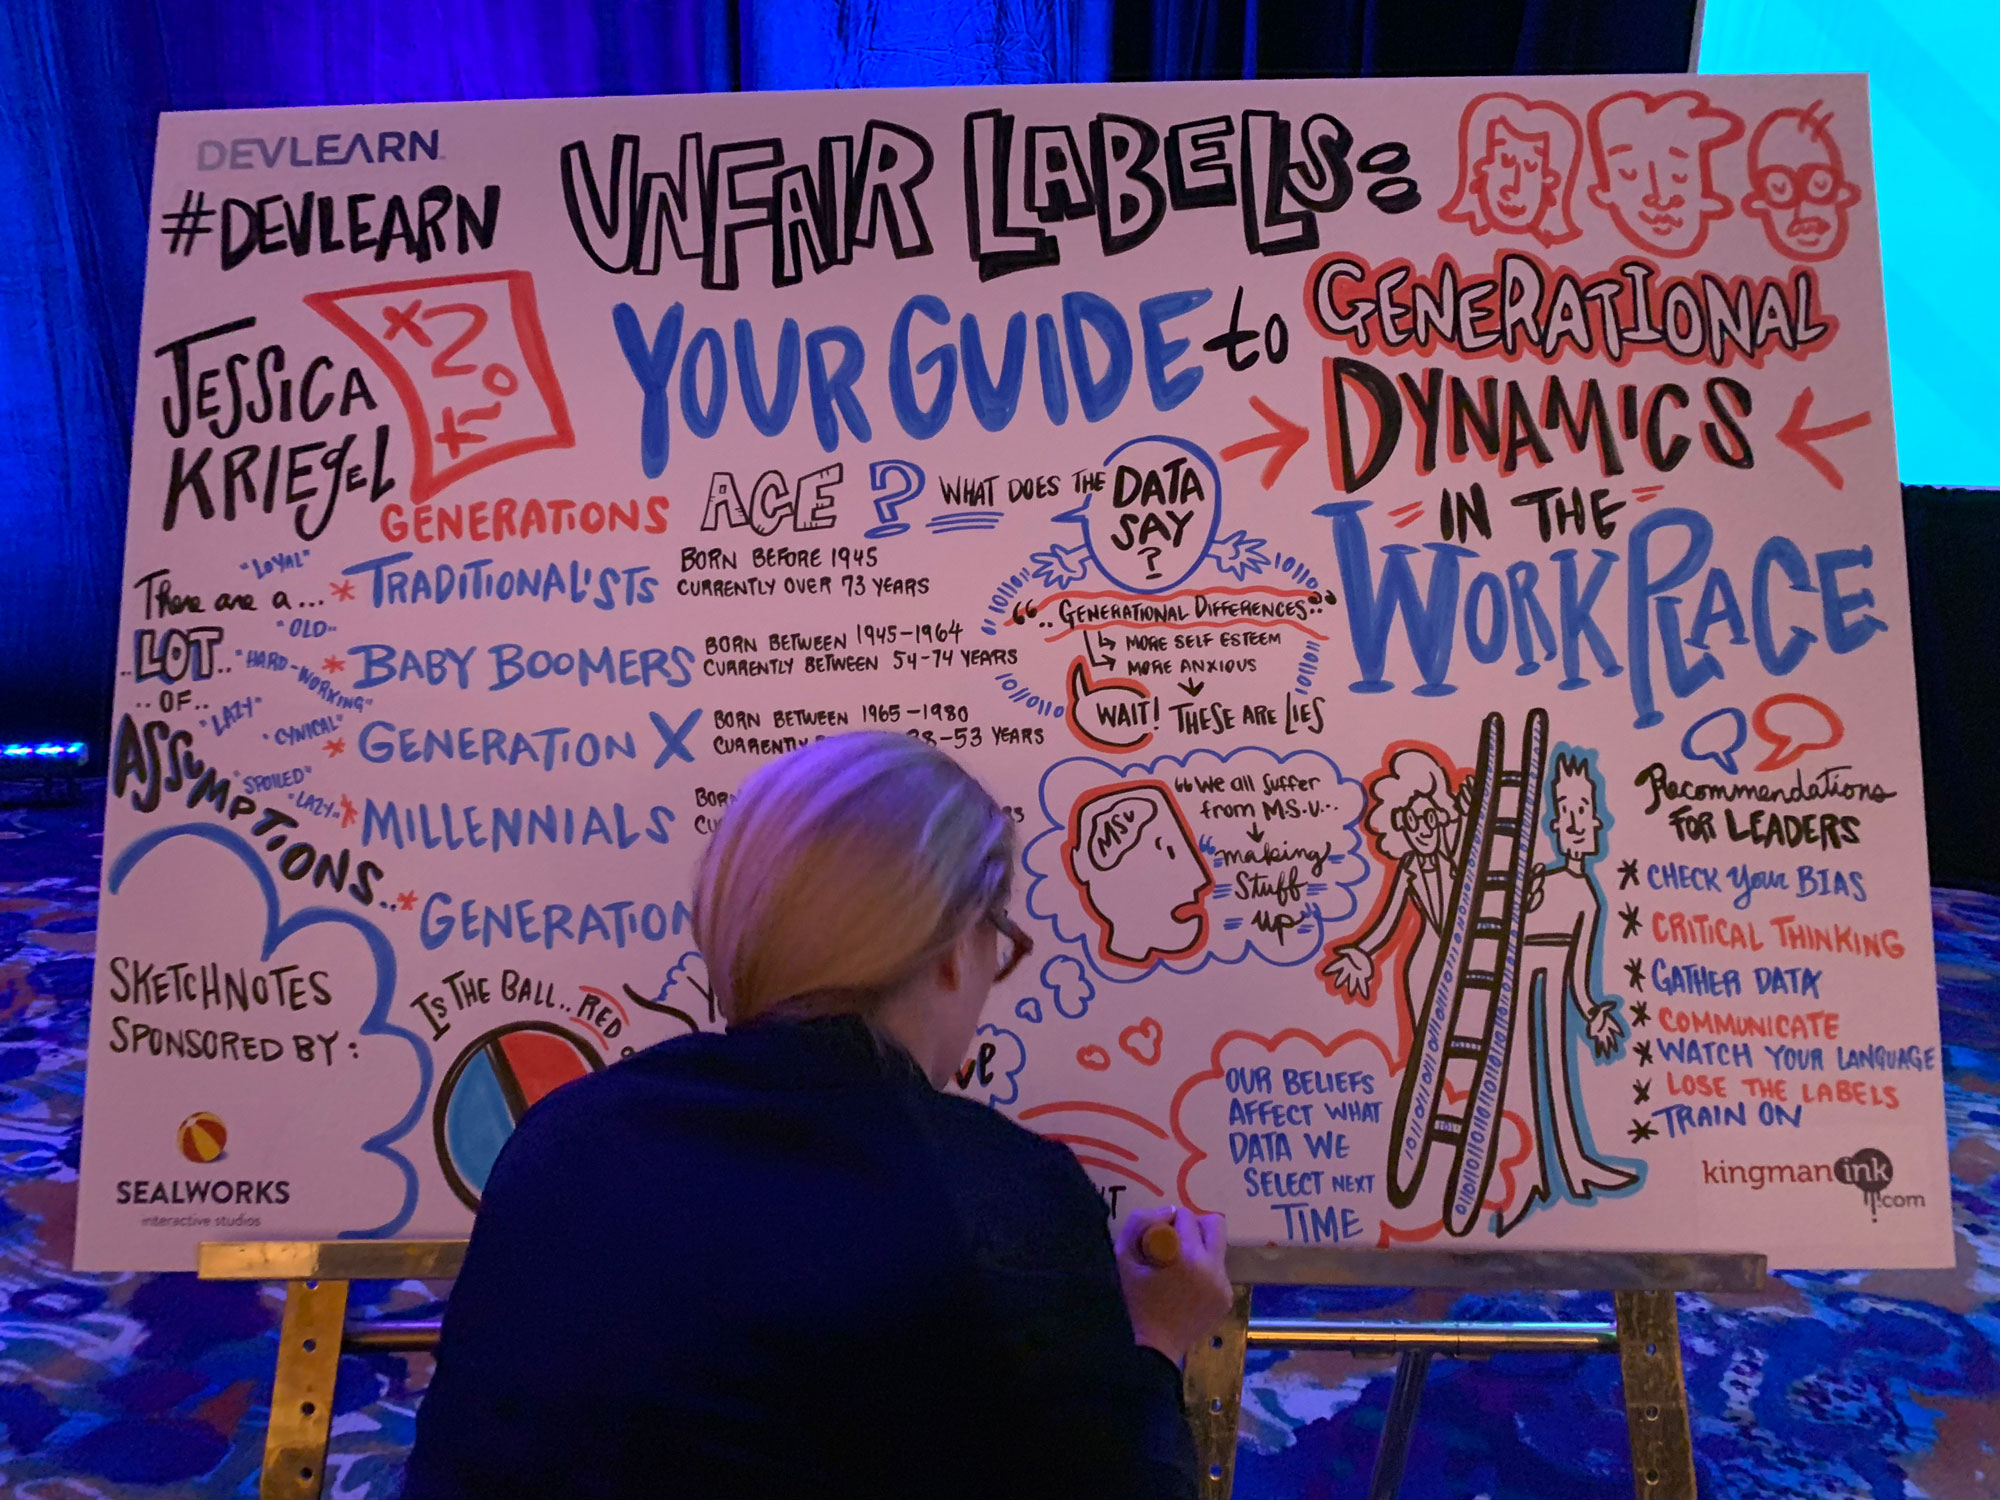 DEVLEARN
#DEVLEARN
UNFAIR LABELS:
YOUR GUIDE to
GENERATIONAL
DYNAMICS
IN THE
WORKPLACE
JESSICA
KRIEgEL
GENERATIONS
AGE ?
There are a...
LOT..
.. OF..
ASSUMPTIONS...
"LOYAL"
* TRADITIONALISTS
BORN BEFORE 1945
CURRENTLY OVER 73 YEARS
"OLD"
"HARD-WORKING"
* BABY BOOMERS
BORN BETWEEN 1945-1964
CURRENTLY BETWEEN 54-74 YEARS
"LAZY"
"CYNICAL"
* GENERATION X
BORN BETWEEN 1965-1980
CURRENTLY
-53 YEARS
"SPOILED"
"LAZY"
* MILLENNIALS
* GENERATION
WHAT DOES THE DATA
SAY
?
"..GENERATIONAL DIFFERENCES.."
MORE SELF ESTEEM
MORE ANXIOUS
WAIT! THESE ARE LIES
MSU
"We all suffer
from M.S.U...
"making
Stuff
up"
IS THE BALL.. RED
OUR BELIEFS
AFFECT WHAT
DATA WE
SELECT NEXT
TIME
Recommendations
FOR LEADERS
* CHECK Your BIAS
* CRITICAL THINKING
* GATHER DATA
* COMMUNICATE
* WATCH YOUR LANGUAGE
* LOSE THE LABELS
* TRAIN ON
SKETCHNOTES
SPONSORED BY:
SEALWORKS
interactive studios
kingman ink
.com